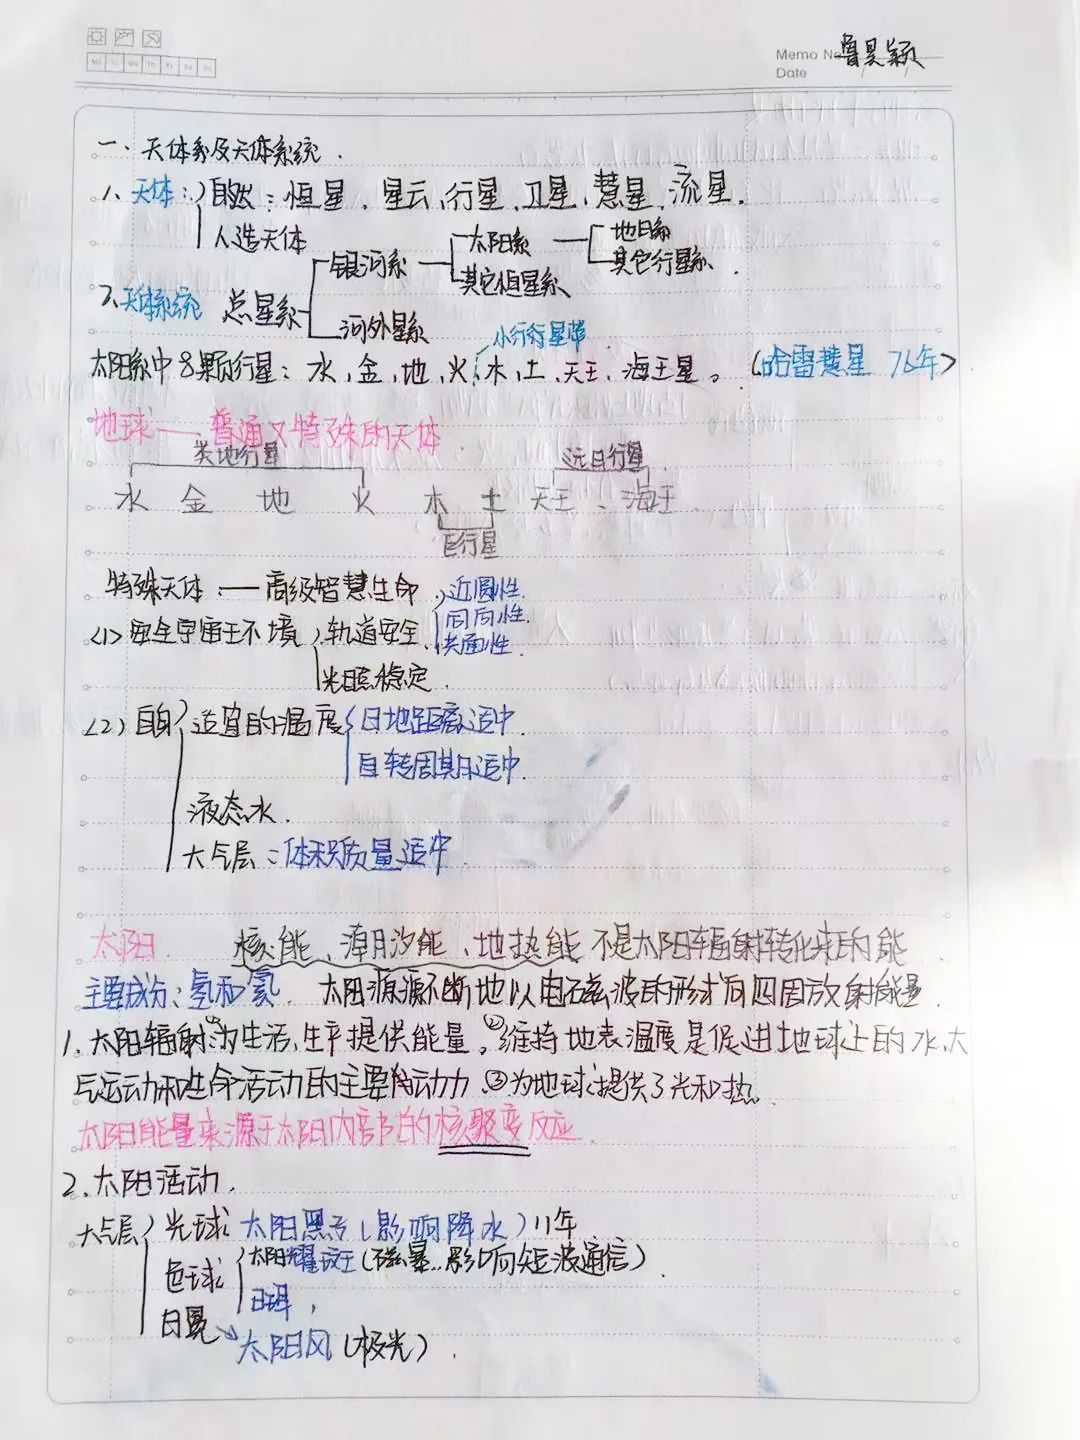 Mo Tu We Th Fr Sa Su
Memo No. 鲁昊颖
Date
一、天体系及天体系统.
1、天体: 自然: 恒星、星云、行星、卫星、慧星、流星.
人造天体
太阳系 — 地月系
银河系 — 其它恒星系 其它行星系.
2、天体系统 总星系
河外星系
小行行星带
太阳系中8颗行星: 水、金、地、火、木、土、天王、海王星。(哈雷慧星 76年)
地球 — 普通又特殊的天体
类地行星 远日行星
水 金 地 火 木 土 天王、海王
巨行星
特殊天体 — 高级智慧生命 近圆性.
同向性.
<1> 安全宇宙环境 轨道安全. 共面性.
光照稳定.
<2) 自身 适宜的温度 日地距离适中.
自转周期适中.
液态水.
大气层: 体积质量适中.
太阳. 核能、潮汐能、地热能 不是太阳辐射转化来的能
主要成分: 氢和氦. 太阳源源不断地以电磁波的形式向四周放射能量.
1. 太阳辐射:①为生活、生产提供能量。②维持地表温度是促进地球上的水、大
气运动和生命活动的主要动力. ③为地球提供了光和热.
太阳能量来源于太阳内部的核聚变反应.
2. 太阳活动.
大气层 光球 太阳黑子(影响降水)11年
色球 太阳耀斑(磁暴..影响短波通信).
日珥,
日冕 → 太阳风(极光).